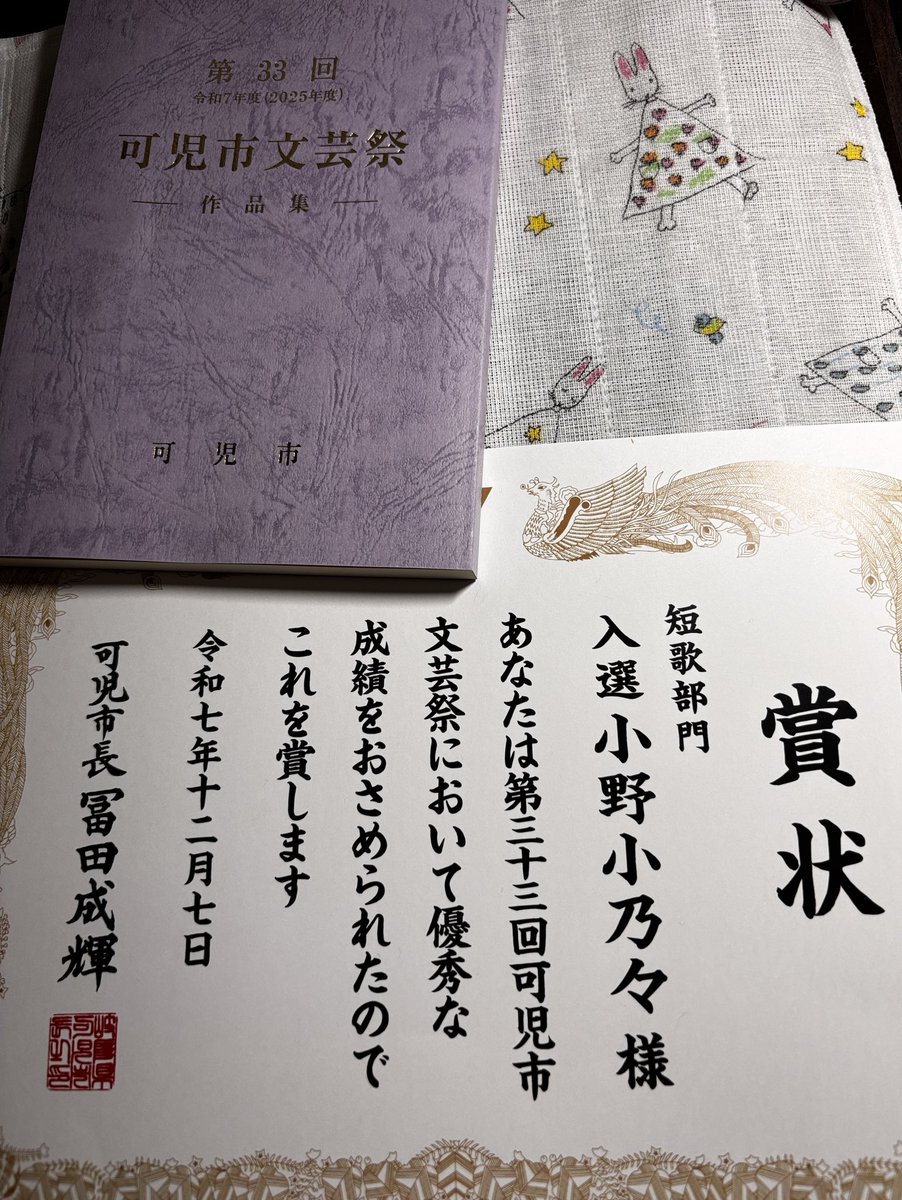 第33回
令和7年度(2025年度)
可児市文芸祭
作品集
可児市
賞状
短歌部門
入選 小野小乃々 様
あなたは第三十三回可児市
文芸祭において優秀な
成績をおさめられたので
これを賞します
令和七年十二月七日
可児市長 冨田成輝
岐阜県
可児市
長之印